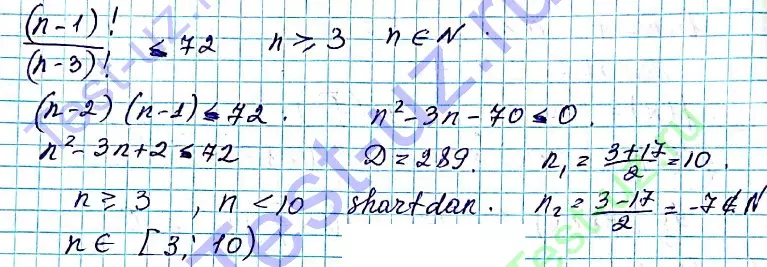 (n-1)! / (n-3)! ≤ 72   n ≥ 3   n ∈ N.
(n-2)(n-1) ≤ 72.   n² - 3n - 70 ≤ 0.
n² - 3n + 2 ≤ 72   D = 289.   n₁ = (3+17)/2 = 10.
n ≥ 3, n < 10 shartdan.   n₂ = (3-17)/2 = -7 ∉ N
n ∈ [3; 10)
Test-uz.ru
Test-uz.ru